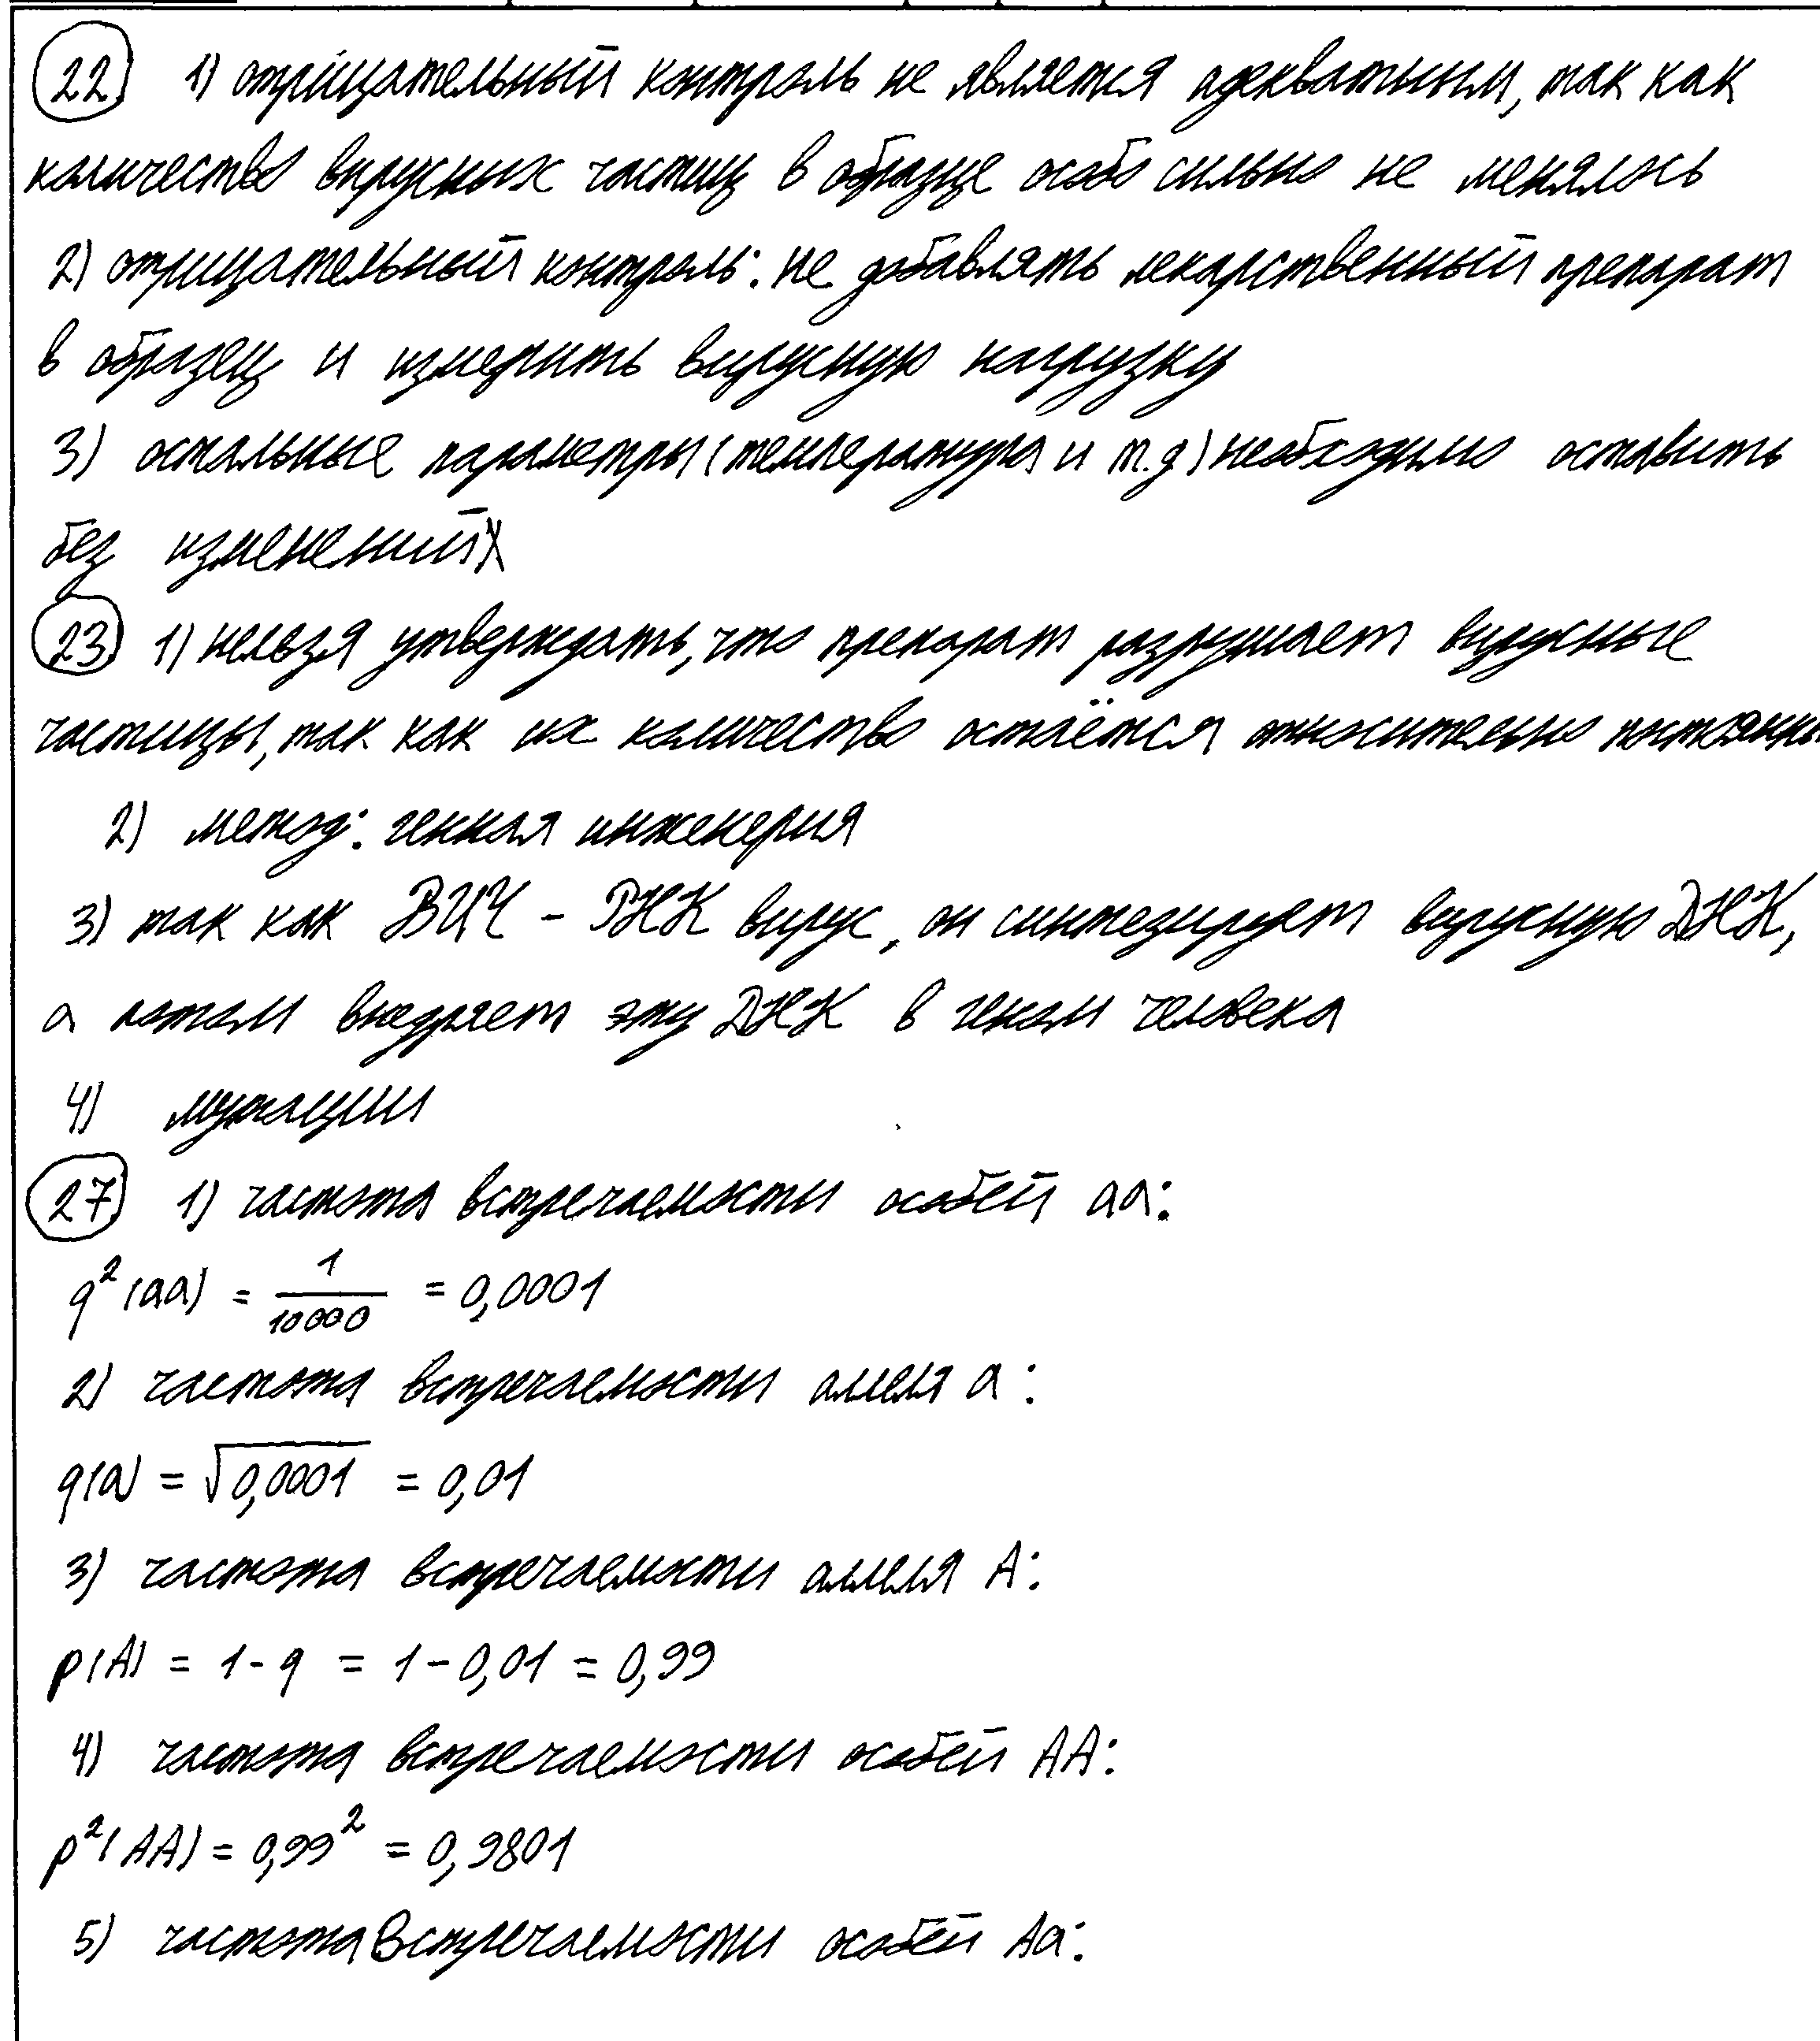 22 1) отрицательный контроль не является адекватным, так как
количество вирусных частиц в образце особо сильно не менялось
2) отрицательный контроль: не добавлять лекарственный препарат
в образец и измерить вирусную нагрузку
3) остальные параметры (температура и т.д) необходимо оставить
без изменений
23 1) нельзя утверждать, что препарат разрушает вирусные
частицы, так как их количество остаётся относительно
2) метод: генная инженерия
3) так как ВИЧ - РНК вирус, он синтезирует вирусную ДНК,
а потом внедряет эту ДНК в геном человека
4) мутации
27 1) частота встречаемости особей aa:
q²(aa) = 1/10000 = 0,0001
2) частота встречаемости аллеля a:
q(a) = √0,0001 = 0,01
3) частота встречаемости аллеля A:
p(A) = 1 - q = 1 - 0,01 = 0,99
4) частота встречаемости особей AA:
p²(AA) = 0,99² = 0,9801
5) частота встречаемости особей Aa: